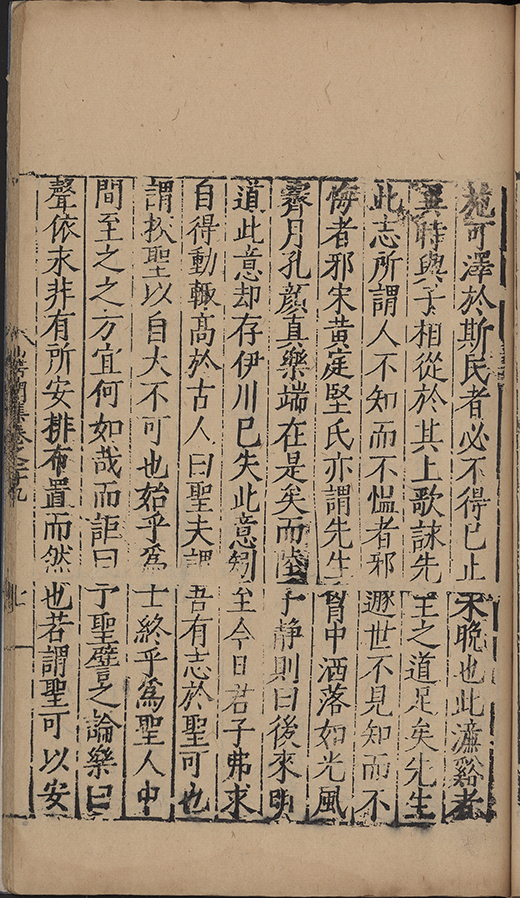 施可澤於斯民者必不得已止未晚也此濂谿者
異時與子相從於其上歌詠先王之道足矣先生
此志所謂人不知而不慍者邪遯世不見知而不
悔者邪宋黃庭堅氏亦謂先生胷中洒落如光風
霽月孔顏真樂端在是矣而陸子靜則曰後來明
道此意却存伊川已失此意矧至今日君子弗求
自得動輒高於古人曰聖夫謂吾有志於聖可也
謂狀聖以自大不可也始乎為士終乎為聖人中
間至之之方宜何如哉而詎曰予聖譬之論樂曰
聲依永井有所安排布置而然也若謂聖可以安
卷之十九